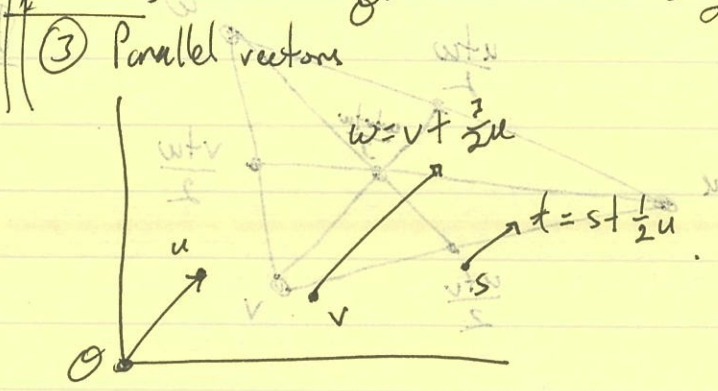 ③ Parallel vectors
w = v + 3/2 u
u
t = s + 1/2 u
s
v
O